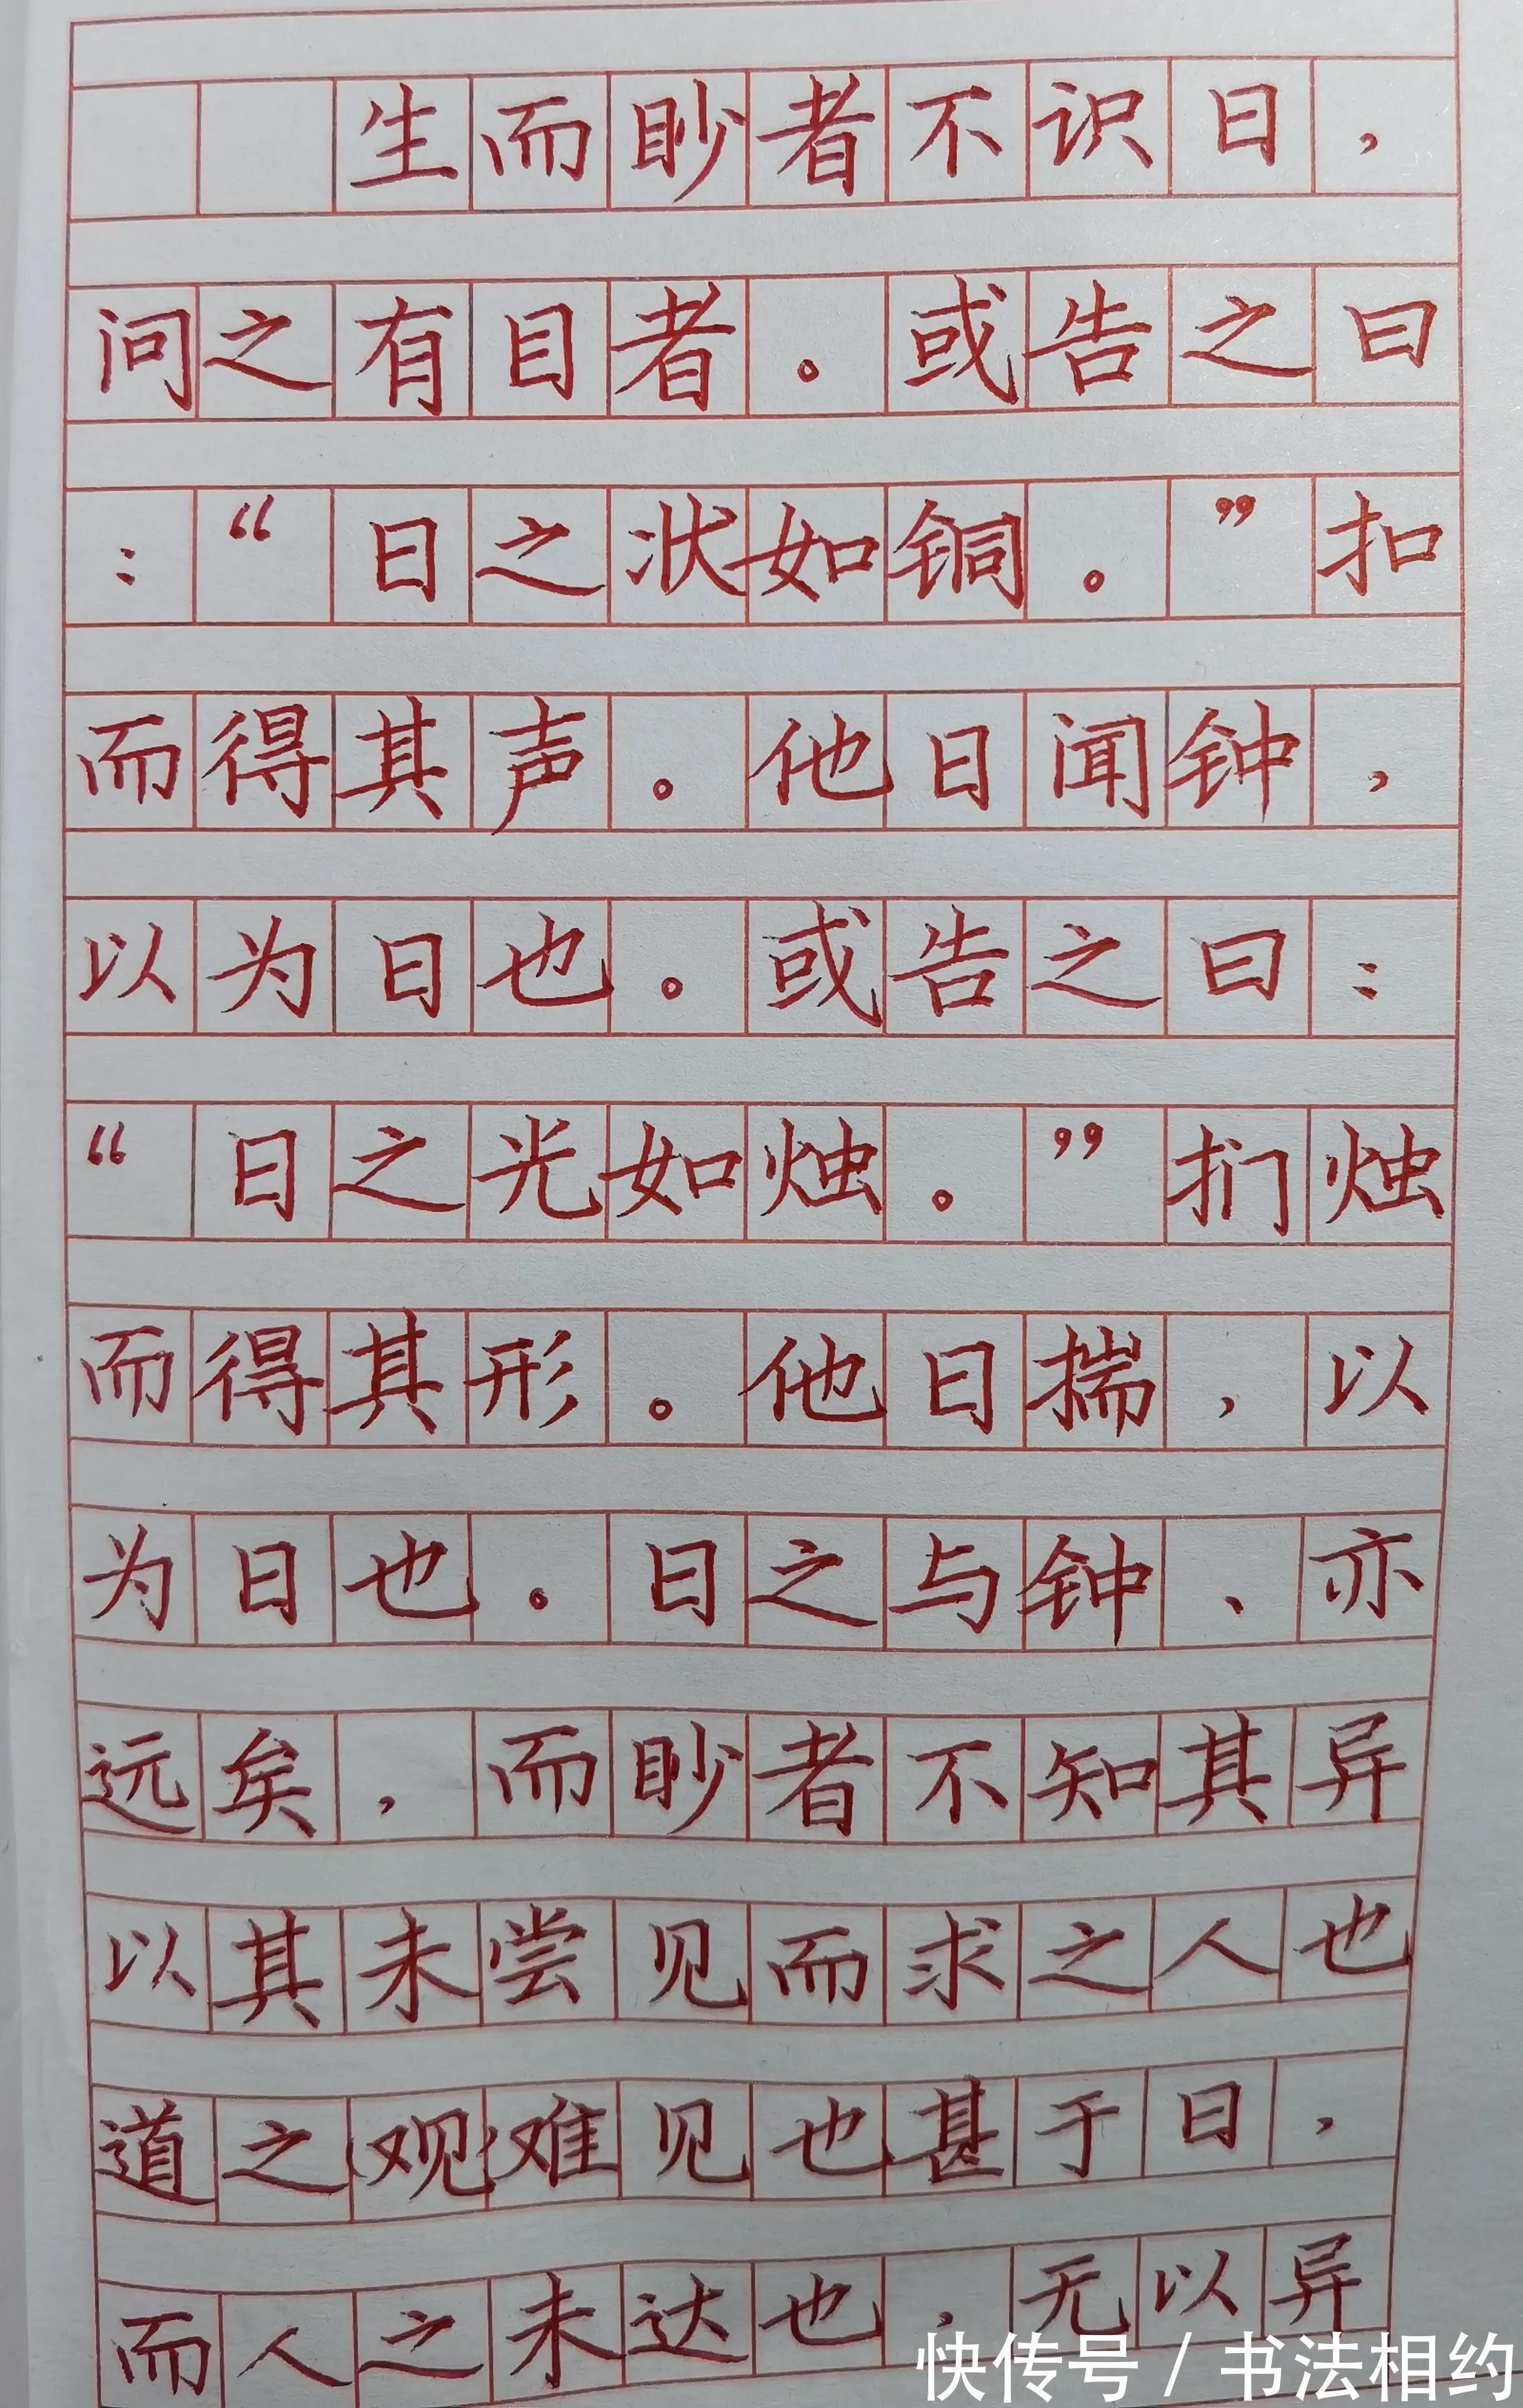 生而眇者不识日，
问之有目者。或告之曰
：“日之状如铜。”扣
而得其声。他日闻钟，
以为日也。或告之曰：
“日之光如烛。”扪烛
而得其形。他日揣，以
为日也。日之与钟、亦
远矣，而眇者不知其异
以其未尝见而求之人也
道之观难见也甚于日，
而人之未达也，无以异
快传号 / 书法相约